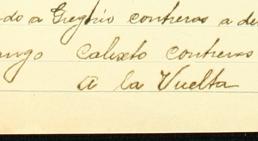 do a Gregorio contreras a de
ango calixto contreras
A la Vuelta